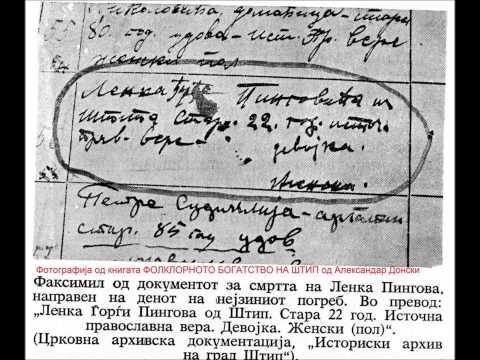 80. год. удова – ист. пр. вере
женски пол
Ленка Ѓорѓе Пинговића из
Штипа стар. 22. год. источ.
прав. вере – девојка.
женски.
Петре
стар. 85 год удов
Фотографија од книгата ФОЛКЛОРНОТО БОГАТСТВО НА ШТИП од Александар Донски
Факсимил од документот за смртта на Ленка Пингова,
направен на денот на нејзиниот погреб. Во превод:
„Ленка Ѓорѓи Пингова од Штип. Стара 22 год. Источна
православна вера. Девојка. Женски (пол)“.
(Црковна архивска документација, „Историски архив
на град Штип“).